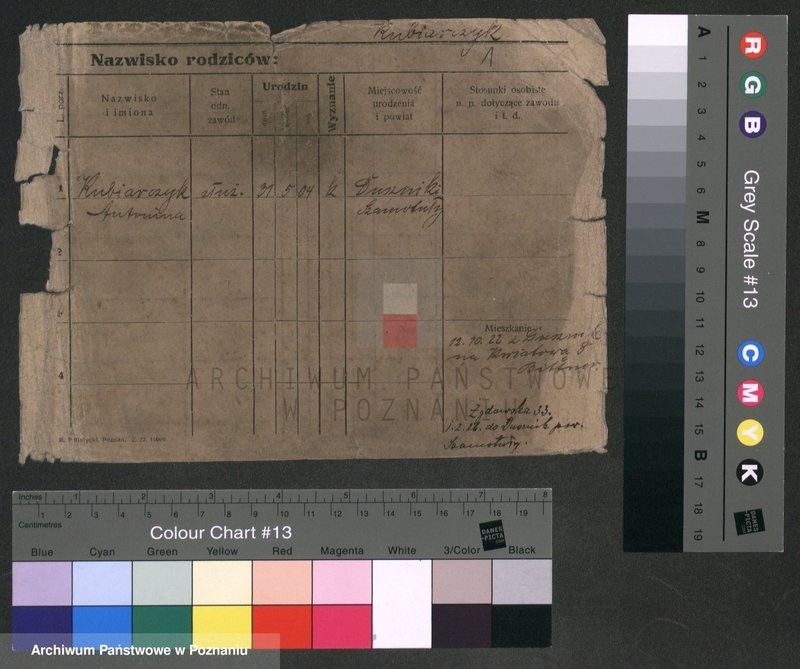 Kubiarczyk
Nazwisko rodziców:
L. porz.
Nazwisko
i imiona
Stan
odn.
zawód
Urodzin
Wyznanie
Miejscowość
urodzenia
i powiat
Stosunki osobiste
n. p. dotyczące zawodu
i t. d.
1
Kubiarczyk
Antonina
służ.
31
5
04
k
Duszniki
Szamotuły
2
4
Mieszkanie
12.10.22 z
na Kwiatowa 8
33.
1.2.26. do Dusznik pow.
Szamotuły.
ARCHIWUM PAŃSTWOWE
W POZNANIU
Poznań,
A 1 2 3 4 5 6 M 8 9 10 11 12 13 14 15 B 17 18 19
R G B
Grey Scale #13
C M Y K
DANES
-PICTA
.COM
Inches 1 2 3 4 5 6 7 8
Centimetres 1 2 3 4 5 6 7 8 9 10 11 12 13 14 15 16 17 18 19
Colour Chart #13
DANES
-PICTA
.COM
Blue Cyan Green Yellow Red Magenta White 3/Color Black
Archiwum Państwowe w Poznaniu